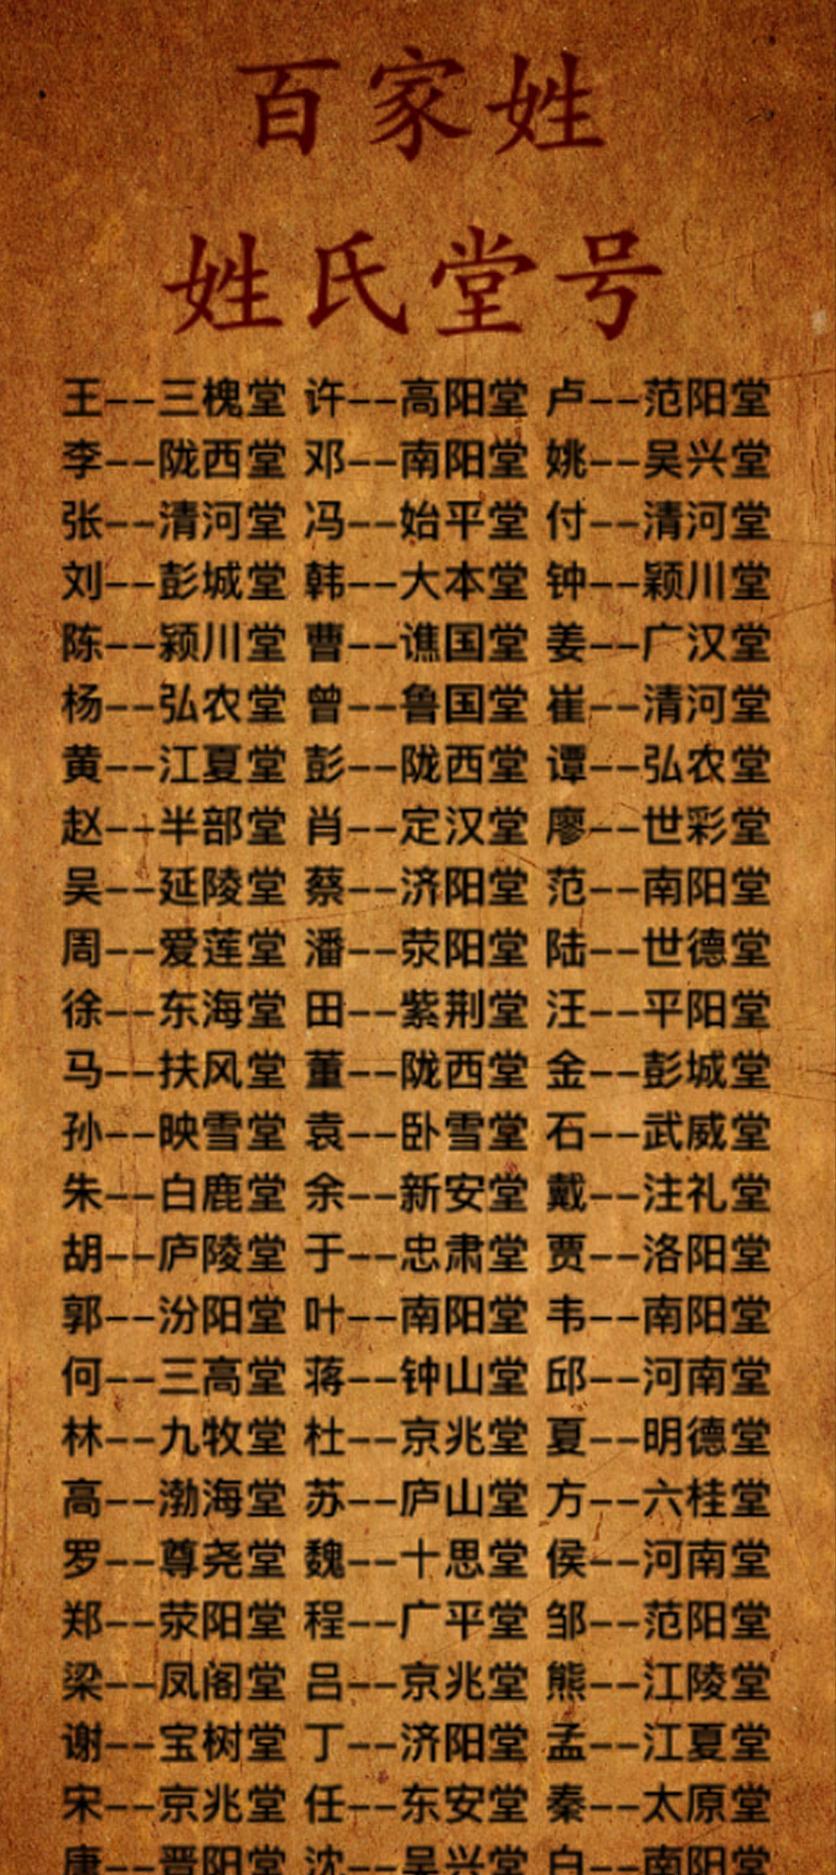 百家姓
姓氏堂号
王--三槐堂 许--高阳堂 卢--范阳堂
李--陇西堂 邓--南阳堂 姚--吴兴堂
张--清河堂 冯--始平堂 付--清河堂
刘--彭城堂 韩--大本堂 钟--颖川堂
陈--颍川堂 曹--谯国堂 姜--广汉堂
杨--弘农堂 曾--鲁国堂 崔--清河堂
黄--江夏堂 彭--陇西堂 谭--弘农堂
赵--半部堂 肖--定汉堂 廖--世彩堂
吴--延陵堂 蔡--济阳堂 范--南阳堂
周--爱莲堂 潘--荥阳堂 陆--世德堂
徐--东海堂 田--紫荆堂 汪--平阳堂
马--扶风堂 董--陇西堂 金--彭城堂
孙--映雪堂 袁--卧雪堂 石--武威堂
朱--白鹿堂 余--新安堂 戴--注礼堂
胡--庐陵堂 于--忠肃堂 贾--洛阳堂
郭--汾阳堂 叶--南阳堂 韦--南阳堂
何--三高堂 蒋--钟山堂 邱--河南堂
林--九牧堂 杜--京兆堂 夏--明德堂
高--渤海堂 苏--庐山堂 方--六桂堂
罗--尊尧堂 魏--十思堂 侯--河南堂
郑--荥阳堂 程--广平堂 邹--范阳堂
梁--凤阁堂 吕--京兆堂 熊--江陵堂
谢--宝树堂 丁--济阳堂 孟--江夏堂
宋--京兆堂 任--东安堂 秦--太原堂
唐--晋阳堂 沈--吴兴堂 白--南阳堂